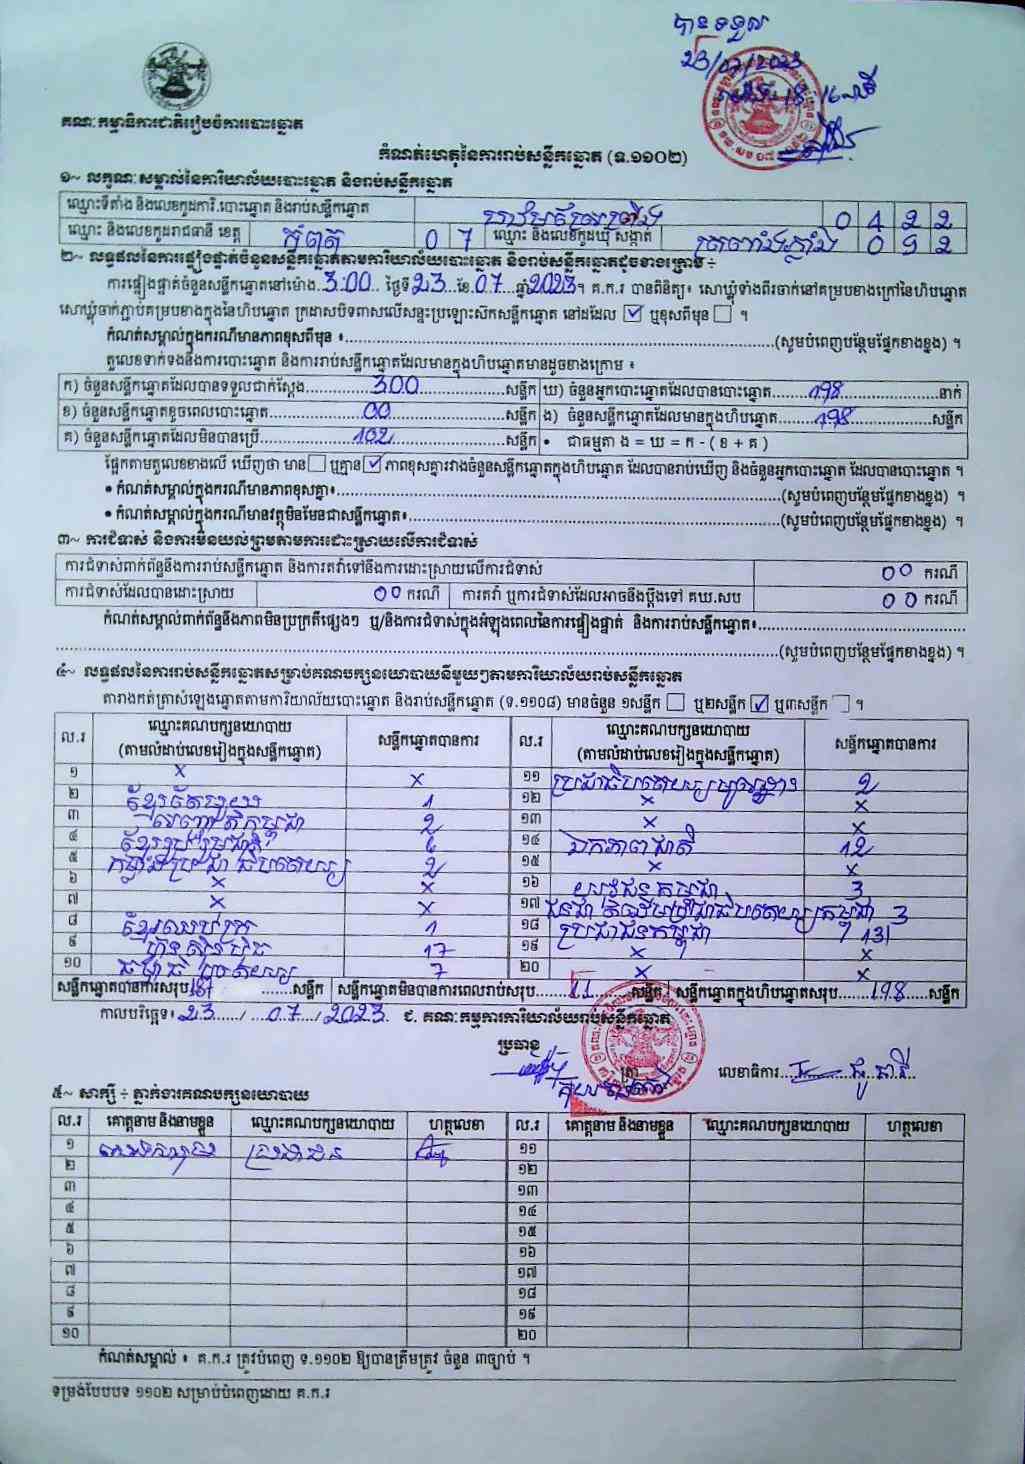 បានទទួល
23/07/2023
គណៈកម្មាធិការជាតិរៀបចំការបោះឆ្នោត
កំណត់ហេតុនៃការរាប់សន្លឹកឆ្នោត (ទ.១១០២)
១~ លក្ខណៈសម្គាល់នៃការិយាល័យបោះឆ្នោត និងរាប់សន្លឹកឆ្នោត
ឈ្មោះទីតាំង និងលេខកូដការិ.បោះឆ្នោត និងរាប់សន្លឹកឆ្នោត 0 4 2 2
ឈ្មោះ និងលេខកូដរាជធានី ខេត្ត កំពត 0 7 ឈ្មោះ និងលេខកូដឃុំ សង្កាត់ 0 9 2
២~ លទ្ធផលនៃការផ្ទៀងផ្ទាត់ចំនួនសន្លឹកឆ្នោតតាមការិយាល័យបោះឆ្នោត និងរាប់សន្លឹកឆ្នោតដូចខាងក្រោម ÷
ការផ្ទៀងផ្ទាត់ចំនួនសន្លឹកឆ្នោតនៅម៉ោង 3:00 ថ្ងៃទី 23 ខែ 07 ឆ្នាំ 2023។ គ.ក.រ បានពិនិត្យ៖ សោឃ្លុំទាំងពីរចាក់នៅគម្របខាងក្រៅនៃហិបឆ្នោត
សោឃ្លុំចាក់ភ្ជាប់គម្របខាងក្នុងនៃហិបឆ្នោត ក្រដាសបិទពាសលើសន្ទះប្រឡោះសិកសន្លឹកឆ្នោត នៅដដែល ☑ ឬខុសពីមុន ☐ ។
កំណត់សម្គាល់ក្នុងករណីមានភាពខុសពីមុន ៖ (សូមបំពេញបន្ថែមផ្នែកខាងខ្នង) ។
តួលេខទាក់ទងនឹងការបោះឆ្នោត និងការរាប់សន្លឹកឆ្នោតដែលមានក្នុងហិបឆ្នោតមានដូចខាងក្រោម ៖
ក) ចំនួនសន្លឹកឆ្នោតដែលបានទទួលជាក់ស្ដែង 300 សន្លឹក ឃ) ចំនួនអ្នកបោះឆ្នោតដែលបានបោះឆ្នោត 198 នាក់
ខ) ចំនួនសន្លឹកឆ្នោតខូចពេលបោះឆ្នោត 00 សន្លឹក ង) ចំនួនសន្លឹកឆ្នោតដែលមានក្នុងហិបឆ្នោត 198 សន្លឹក
គ) ចំនួនសន្លឹកឆ្នោតដែលមិនបានប្រើ 102 សន្លឹក • ជាធម្មតា ង = ឃ = ក - ( ខ + គ )
ផ្អែកតាមតួលេខខាងលើ ឃើញថា មាន ☐ ឬគ្មាន ☑ ភាពខុសគ្នារវាងចំនួនសន្លឹកឆ្នោតក្នុងហិបឆ្នោត ដែលបានរាប់ឃើញ និងចំនួនអ្នកបោះឆ្នោត ដែលបានបោះឆ្នោត ។
• កំណត់សម្គាល់ក្នុងករណីមានភាពខុសគ្នា៖ (សូមបំពេញបន្ថែមផ្នែកខាងខ្នង) ។
• កំណត់សម្គាល់ក្នុងករណីមានវត្ថុមិនមែនជាសន្លឹកឆ្នោត៖ (សូមបំពេញបន្ថែមផ្នែកខាងខ្នង) ។
៣~ ការជំទាស់ និងការមិនយល់ព្រមតាមការដោះស្រាយលើការជំទាស់
ការជំទាស់ពាក់ព័ន្ធនឹងការរាប់សន្លឹកឆ្នោត និងការតវ៉ាទៅនឹងការដោះស្រាយលើការជំទាស់ 00 ករណី
ការជំទាស់ដែលបានដោះស្រាយ 00 ករណី ការតវ៉ា ឬការជំទាស់ដែលអាចនឹងប្ដឹងទៅ គឃ.សប 00 ករណី
កំណត់សម្គាល់ពាក់ព័ន្ធនឹងភាពមិនប្រក្រតីផ្សេងៗ ឬ/និងការជំទាស់ក្នុងអំឡុងពេលនៃការផ្ទៀងផ្ទាត់ និងការរាប់សន្លឹកឆ្នោត៖
(សូមបំពេញបន្ថែមផ្នែកខាងខ្នង) ។
៤~ លទ្ធផលនៃការរាប់សន្លឹកឆ្នោតសម្រាប់គណបក្សនយោបាយនីមួយៗតាមការិយាល័យរាប់សន្លឹកឆ្នោត
តារាងកត់ត្រាសំឡេងឆ្នោតតាមការិយាល័យបោះឆ្នោត និងរាប់សន្លឹកឆ្នោត (ទ.១១០៨) មានចំនួន ១សន្លឹក ☐ ឬ២សន្លឹក ☑ ឬ៣សន្លឹក ☐ ។
ល.រ ឈ្មោះគណបក្សនយោបាយ (តាមលំដាប់លេខរៀងក្នុងសន្លឹកឆ្នោត) សន្លឹកឆ្នោតបានការ ល.រ ឈ្មោះគណបក្សនយោបាយ (តាមលំដាប់លេខរៀងក្នុងសន្លឹកឆ្នោត) សន្លឹកឆ្នោតបានការ
១ x x ១១ 2
២ ខ្មែរតែមួយ 1 ១២ x x
៣ 2 ១៣ x x
៤ ខ្មែររួបរួមជាតិ 6 ១៤ ឯកភាពជាតិ 12
៥ កម្លាំងប្រជាធិបតេយ្យ 2 ១៥ x x
៦ x x ១៦ យុវជនកម្ពុជា 3
៧ x x ១៧ 3
៨ ខ្មែរឈប់ក្រ 1 ១៨ ប្រជាជនកម្ពុជា 131
៩ ហ៊្វុនស៊ិនប៉ិច 17 ១៩ x x
១០ ធម្មាធិបតេយ្យ 7 ២០ x x
សន្លឹកឆ្នោតបានការសរុប 187 សន្លឹក សន្លឹកឆ្នោតមិនបានការពេលរាប់សរុប 11 សន្លឹក សន្លឹកឆ្នោតក្នុងហិបឆ្នោតសរុប 198 សន្លឹក
កាលបរិច្ឆេទ៖ 23 / 07 / 2023 ៩. គណៈកម្មការការិយាល័យរាប់សន្លឹកឆ្នោត
ប្រធាន
ត្រា លេខាធិការ
៥~ សាក្សី ÷ ភ្នាក់ងារគណបក្សនយោបាយ
ល.រ គោត្តនាម និងនាមខ្លួន ឈ្មោះគណបក្សនយោបាយ ហត្ថលេខា ល.រ គោត្តនាម និងនាមខ្លួន ឈ្មោះគណបក្សនយោបាយ ហត្ថលេខា
១ ប្រជាជន ១១
២ ១២
៣ ១៣
៤ ១៤
៥ ១៥
៦ ១៦
៧ ១៧
៨ ១៨
៩ ១៩
១០ ២០
កំណត់សម្គាល់ ៖ គ.ក.រ ត្រូវបំពេញ ទ.១១០២ ឱ្យបានត្រឹមត្រូវ ចំនួន ៣ច្បាប់ ។
ទម្រង់បែបបទ ១១០២ សម្រាប់បំពេញដោយ គ.ក.រ